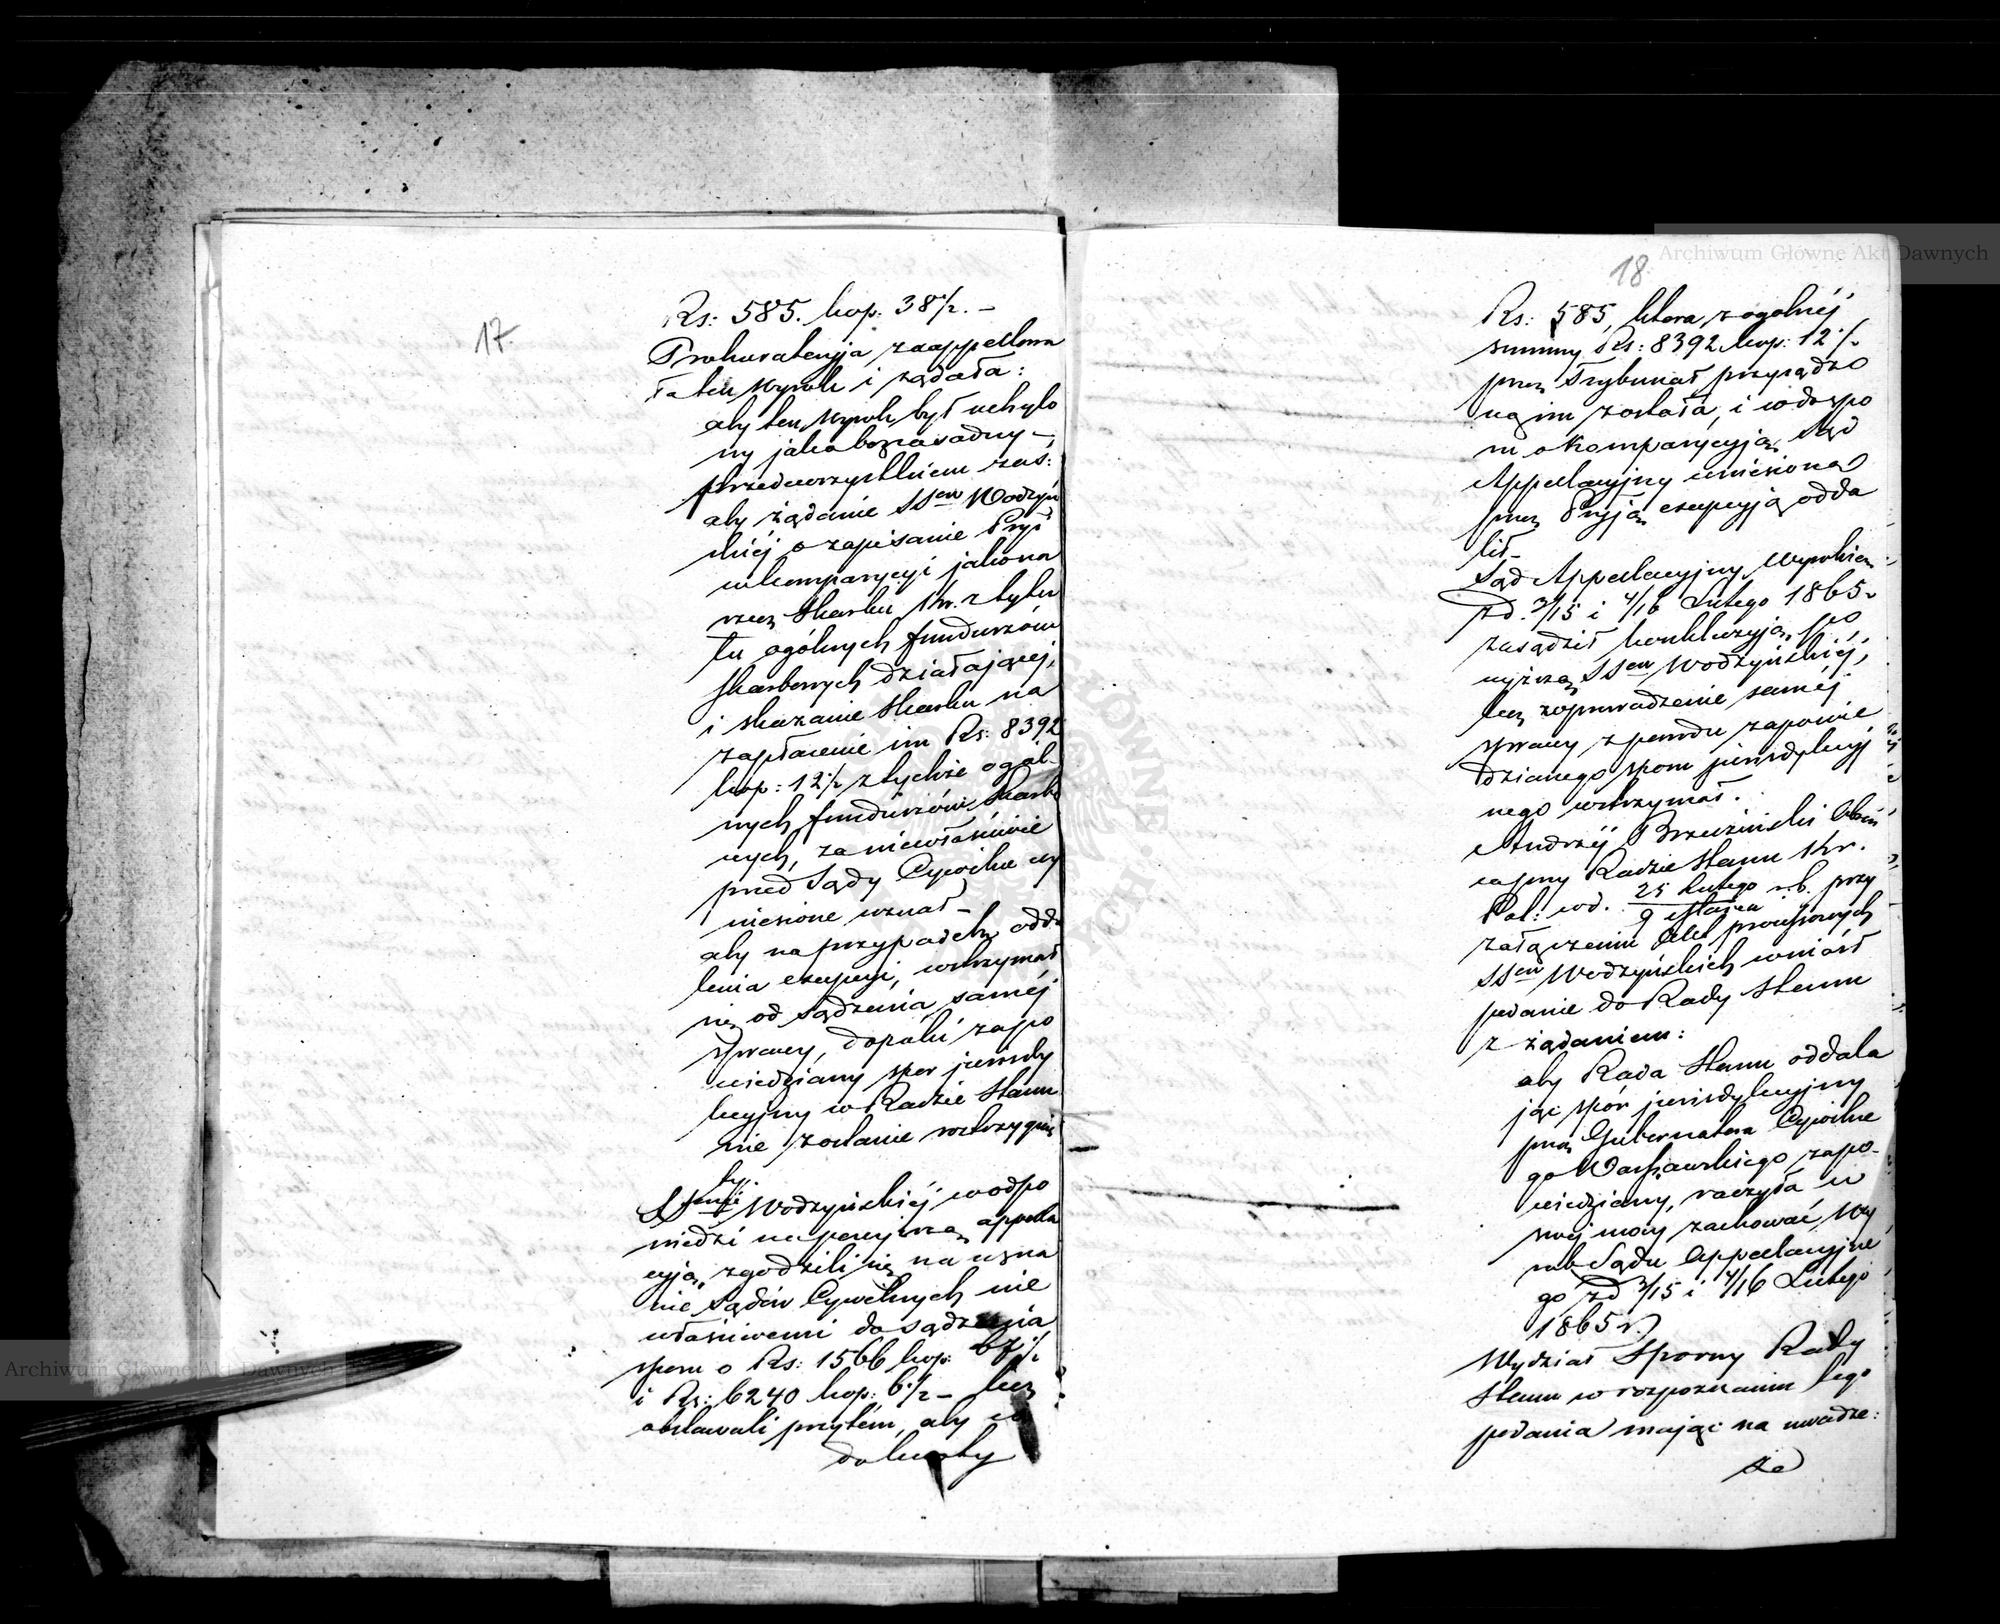 17.
Rs: 585. kop: 38 1/2. –
Prokuratoryja zaappellowa
ła ten wyrok i żądała:
aby ten wyrok był uchylo
ny jako bezzasadny –
przedewszystkiem zaś:
aby żądanie SSów Wodzyń
skiéj o zapisanie Pryi
w kompanycyi jako na
rzecz Skarbu Kr. z tytu
łu ogólnych funduszów
skarbowych działającéj,
i skazanie Skarbu na
zapłacenie im Rs: 8392
kop: 12 1/2 z tychże ogól-
nych funduszów skarbo
wych, za niewłaściwie
przed Sądy Cywilne wy
niesione uznał –
aby na przypadek odda
lenia excepcyi, wstrzymał
się od sądzenia saméj
sprawy, dopóki zapo
wiedziany spór jurisdy
kcyjny w Radzie Stanu
nie zostanie rozstrzygnię
ty.
SSowie Wodzyńskiéj w odpo
wiedzi na powyższą appella
cyją, zgodzili się na uzna
nie Sądów Cywilnych nie
właściwemi do sądzenia
sporu o Rs: 1566 kop: 67 1/2
i Rs: 6240 kop: 6 1/2 – lecz
obstawali przytém, aby co
do kwoty
18
Rs: 585, która z ogólnéj
summy Rs: 8392 kop: 12 1/2
przez Trybunał przysądzo
ną im została, i w dozpo
m o kompanycyją Sąd
Appellacyjny wniesioną
przez Pryją excepcyją odda
lił –
Sąd Appellacyjny Wyrokiem
z d. 3/15 i 4/16 Lutego 1865 r
zasądził konkluzyją po
wyższą SSów Wodzyńskiéj,
lecz zoprowadzenie saméj
sprawy z powodu zapowie
dzianego sporu jurisdykcyj
nego wstrzymał.
Andrzéj Brzeziński Obroń
ca przy Radzie Stanu Kr.
Pol: w d. 25 Lutego / 9 Marca r. b. przy
załączeniu Akt processowych
SSów Wodzyńskich wniósł
podanie do Rady Stanu
z żądaniem:
aby Rada Stanu oddala
jąc spór jurisdykcyjny
przez Gubernatora Cywilne
go Warszawskiego zapo-
wiedziany, raczyła w
swéj mocy zachować Wy
rok Sądu Appellacyjne
go z d 3/15 i 4/16 Lutego
1865 r.
Wydział Sporny Rady
Stanu w rozpoznaniu tego
podania mając na uwadze:
że
Archiwum Główne Akt Dawnych
Archiwum Główne Akt Dawnych